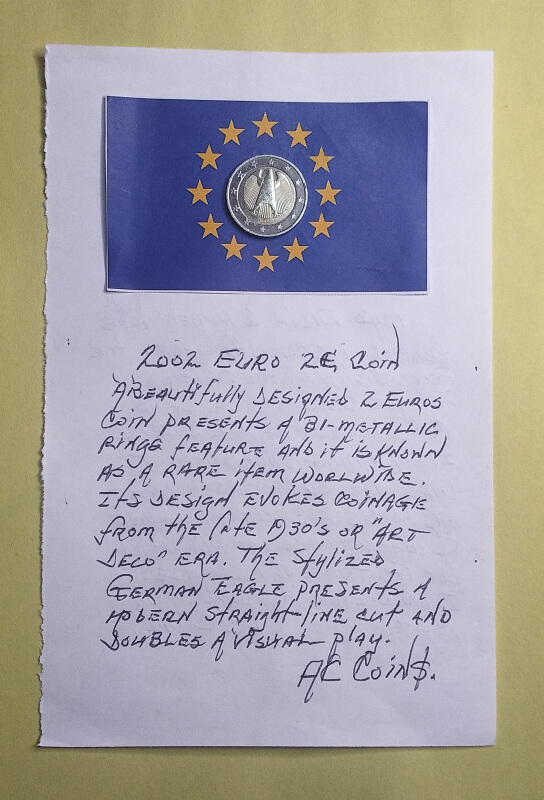 2002 EURO 2€ Coin
A BEAUTIfully DESIGNED 2 EUROS
COIN PRESENTS A BI-METALLIC
RINGS FEATURE AND IT IS KNOWN
AS A RARE ITEM WORLWIDE.
ITS DESIGN EVOKES COINAGE
from the late 1930's OR "ART
DECO" ERA. THE Stylized
GERMAN EAGLE PRESENTS A
MODERN STRAIGHT-LINE CUT AND
DOUBLES A VISUAL PlAy.
AC COIN$.